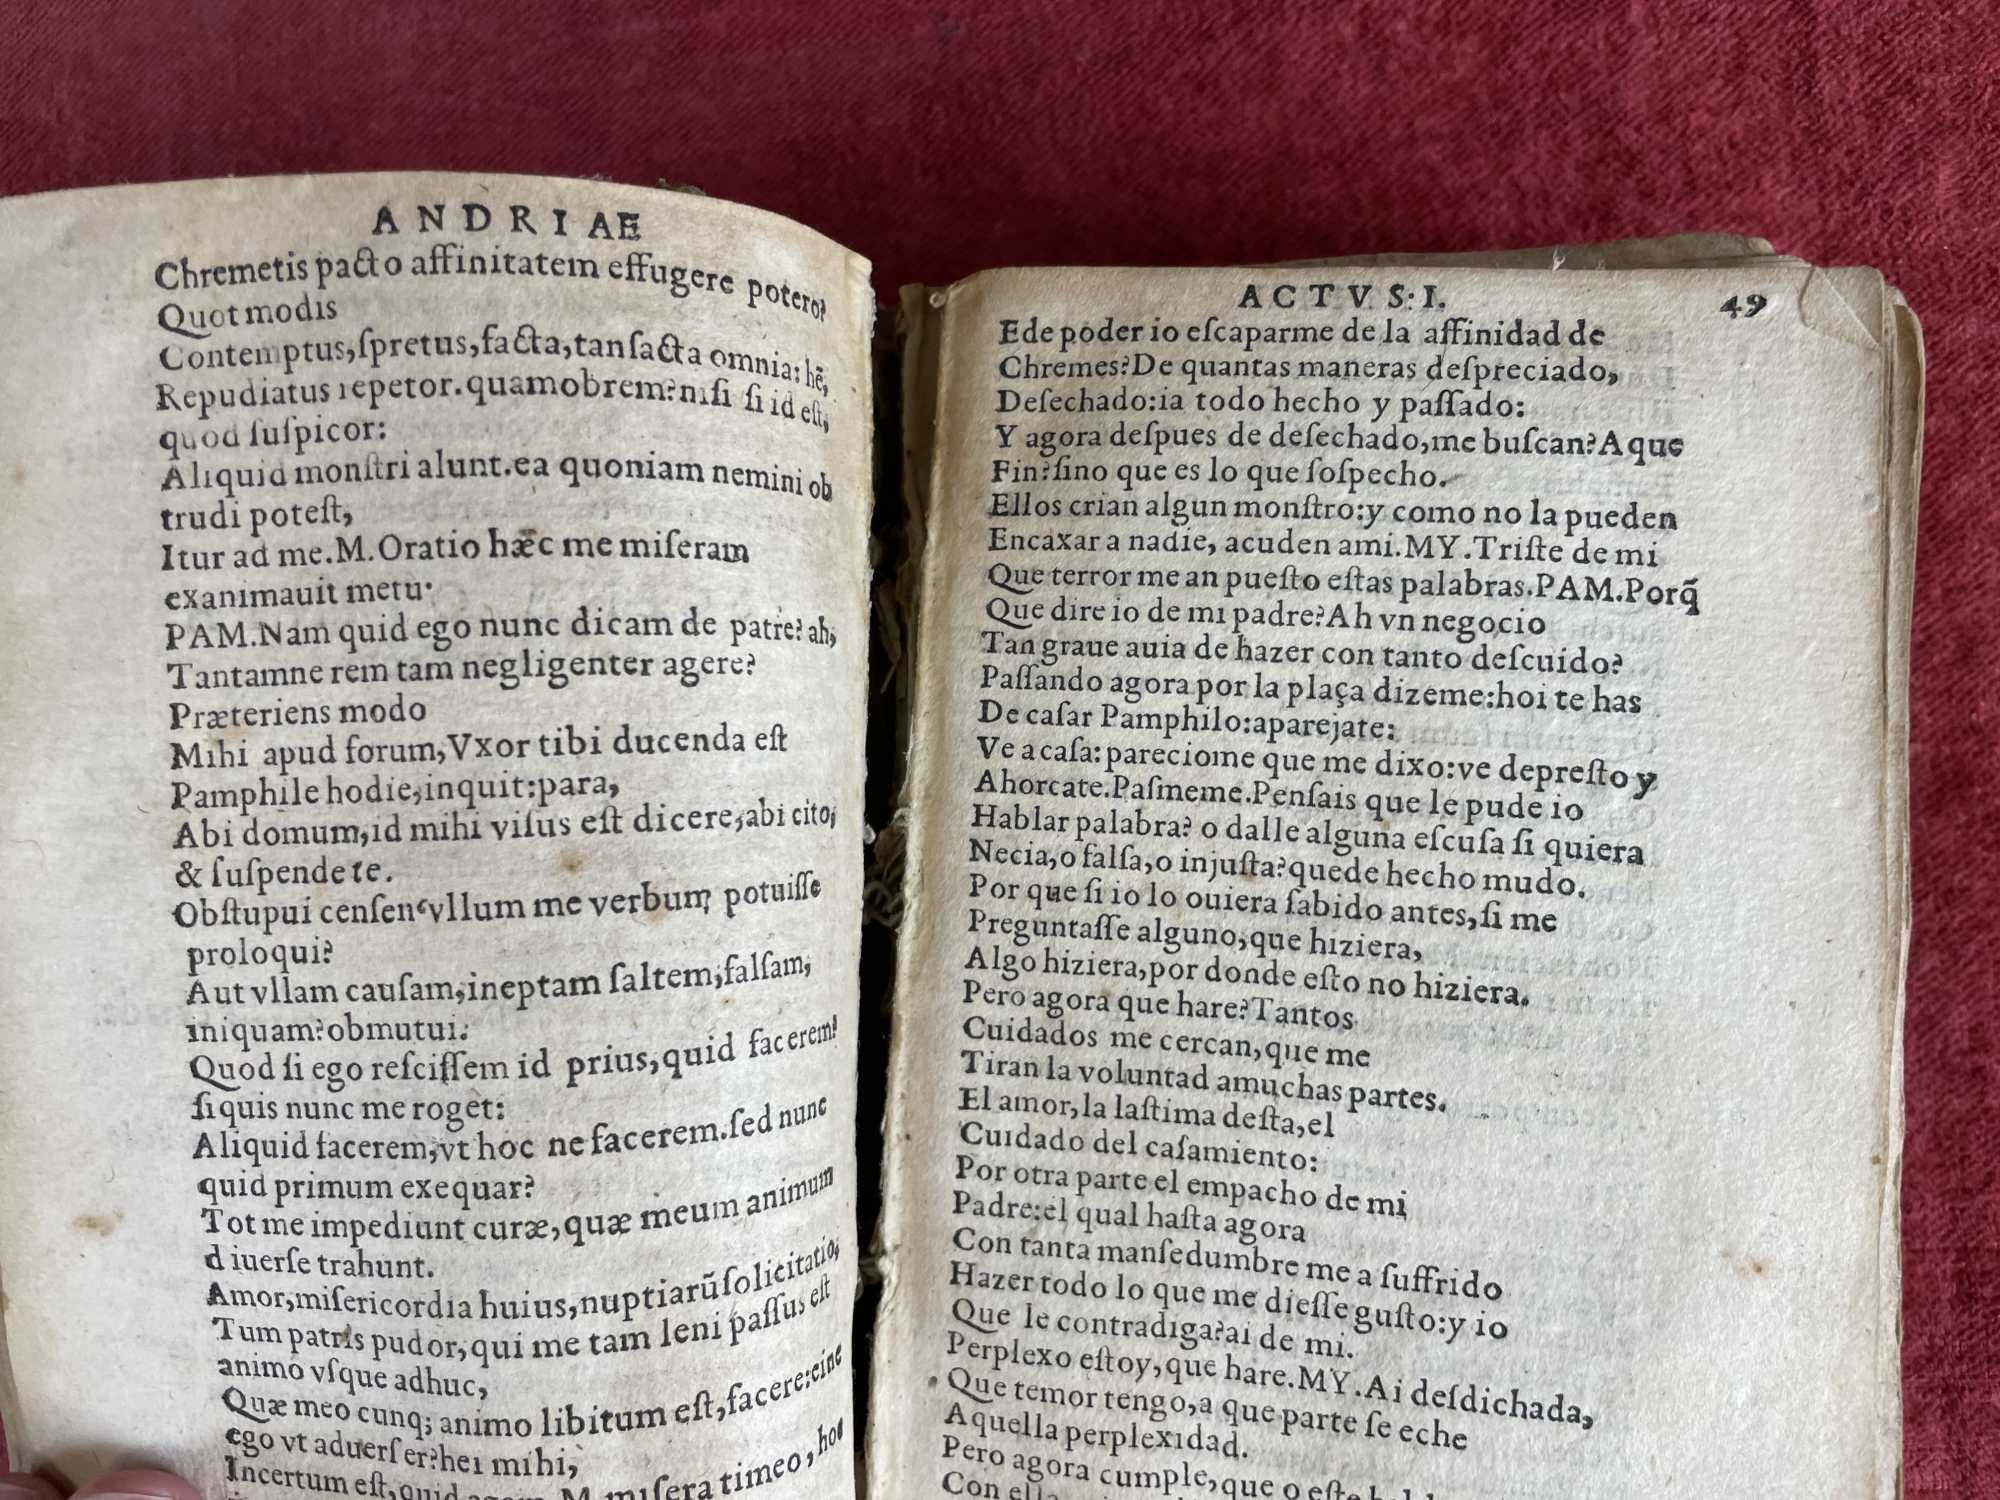 ANDRIAE
Chremetis pacto affinitatem effugere potero?
Quot modis
Contemptus,ſpretus,facta,tanſacta omnia: hē,
Repudiatus repetor.quamobrem?niſi ſi id eſt,
quod ſuſpicor:
Aliquid monſtri alunt.ea quoniam nemini ob
trudi poteſt,
Itur ad me.M.Oratio hæc me miſeram
exanimauit metu.
PAM.Nam quid ego nunc dicam de patre? ah,
Tantamne rem tam negligenter agere?
Præteriens modo
Mihi apud forum,Vxor tibi ducenda eſt
Pamphile hodie,inquit:para,
Abi domum,id mihi viſus eſt dicere,abi cito,
& ſuſpende te.
Obſtupui cenſen' vllum me verbum potuiſſe
proloqui?
Aut vllam cauſam,ineptam ſaltem,falſam,
iniquam?obmutui.
Quod ſi ego reſciſſem id prius,quid facerem?
ſi quis nunc me roget:
Aliquid facerem,vt hoc ne facerem.ſed nunc
quid primum exequar?
Tot me impediunt curæ,quæ meum animum
diuerſe trahunt.
Amor,miſericordia huius,nuptiarū ſolicitatio,
Tum patris pudor,qui me tam leni paſſus eſt
animo vſque adhuc,
Quæ meo cunq; animo libitum eſt,facere:eine
ego vt aduerſer?hei mihi,
Incertum eſt,quid agam.M.miſera timeo,hoc
ACTVS:I. 49
E de poder io eſcaparme de la affinidad de
Chremes?De quantas maneras deſpreciado,
Deſechado:ia todo hecho y paſſado:
Y agora deſpues de deſechado,me buſcan?A que
Fin?ſino que es lo que ſoſpecho.
Ellos crian algun monſtro:y como no la pueden
Encaxar a nadie, acuden ami.MY.Triſte de mi
Que terror me an pueſto eſtas palabras.PAM.Porq̃
Que dire io de mi padre?Ah vn negocio
Tan graue auia de hazer con tanto deſcuido?
Paſſando agora por la plaça dizeme:hoi te has
De caſar Pamphilo:aparejate:
Ve a caſa:pareciome que me dixo:ve depreſto y
Ahorcate.Paſmeme.Penſais que le pude io
Hablar palabra? o dalle alguna eſcuſa ſi quiera
Necia,o falſa,o injuſta?quede hecho mudo.
Por que ſi io lo ouiera ſabido antes,ſi me
Preguntaſſe alguno,que hiziera,
Algo hiziera,por donde eſto no hiziera.
Pero agora que hare?Tantos
Cuidados me cercan,que me
Tiran la voluntad amuchas partes.
El amor,la laſtima deſta,el
Cuidado del caſamiento:
Por otra parte el empacho de mi
Padre:el qual haſta agora
Con tanta manſedumbre me a ſuffrido
Hazer todo lo que me dieſſe guſto:y io
Que le contradiga?ai de mi.
Perplexo eſtoy,que hare.MY.Ai deſdichada,
Que temor tengo,a que parte ſe eche
Aquella perplexidad.
Pero agora cumple,que o eſte
Con ella